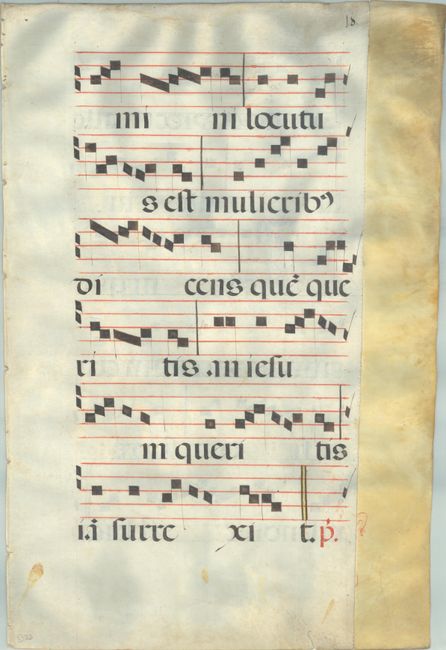 18
mi ni locutu
s est mulierib9
di cens quē que
ri tis .an iesu
m queri tis
surre xi t. p̄.